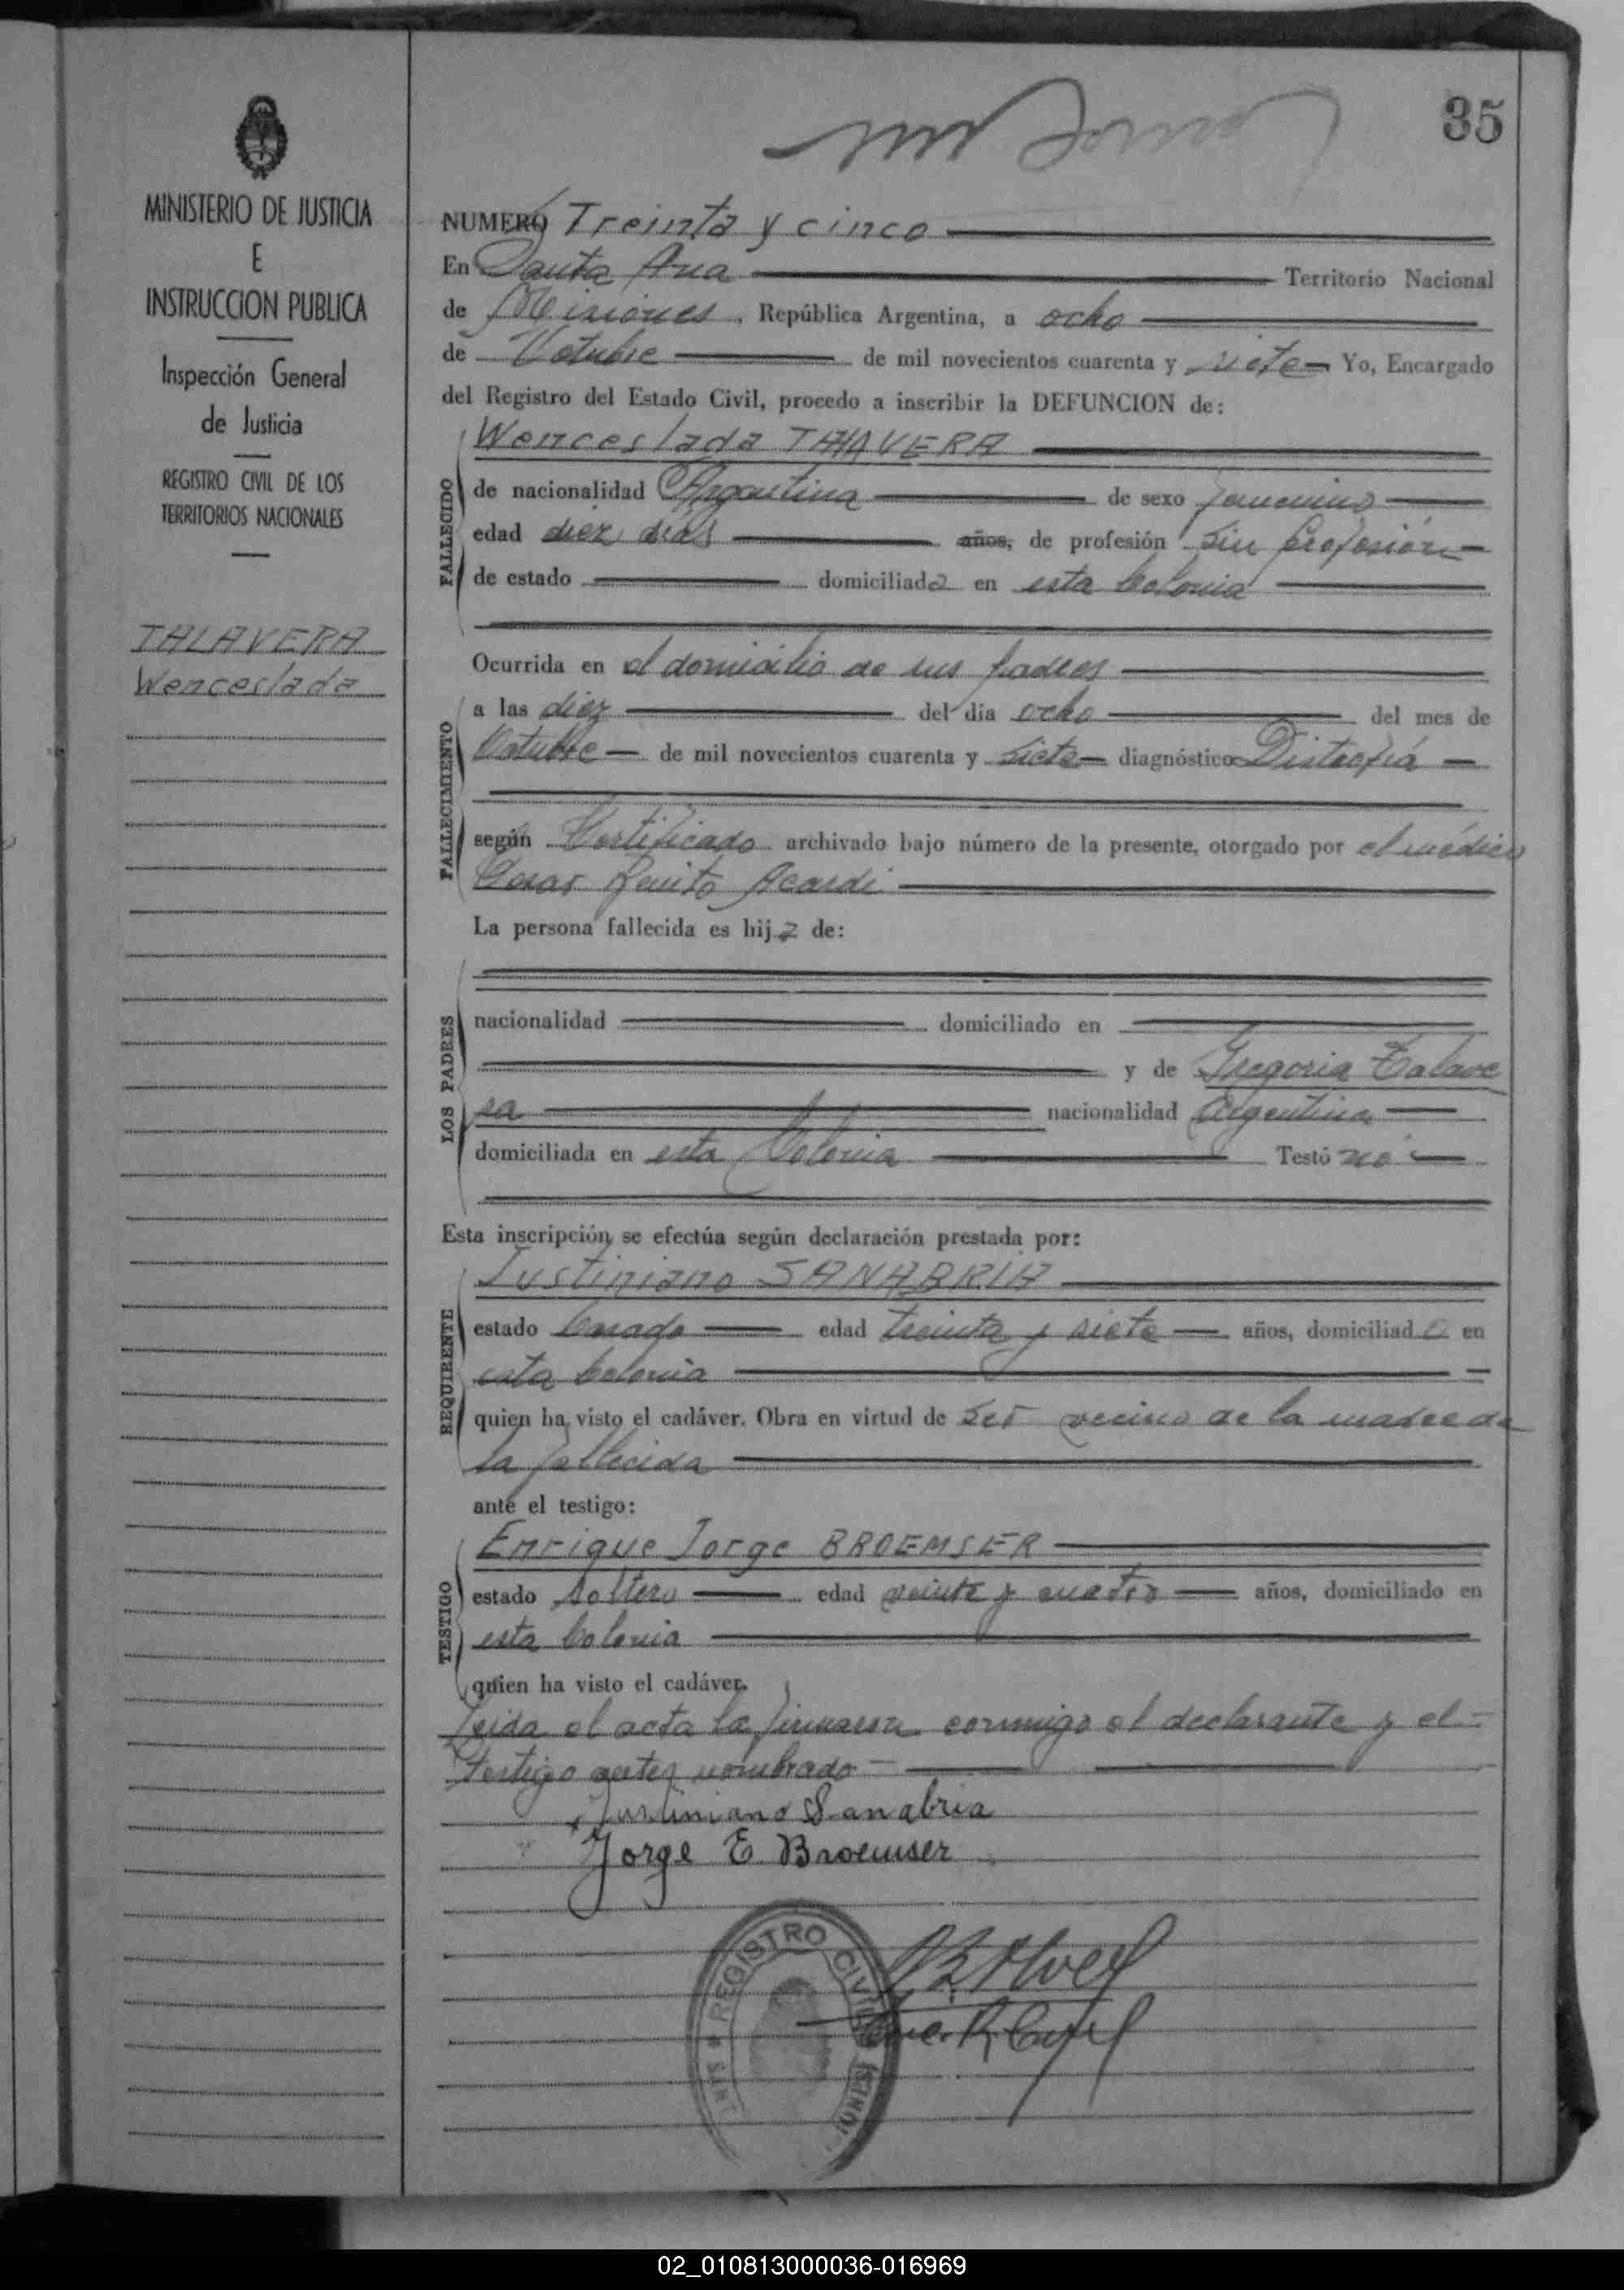 35
MINISTERIO DE JUSTICIA
E
INSTRUCCION PUBLICA
Inspección General
de Justicia
REGISTRO CIVIL DE LOS
TERRITORIOS NACIONALES
TALAVERA
Wenceslada
NUMERO Treinta y cinco
En Santa Ana Territorio Nacional
de Misiones, República Argentina, a ocho
de Octubre de mil novecientos cuarenta y siete Yo, Encargado
del Registro del Estado Civil, procedo a inscribir la DEFUNCION de:
Wenceslada TALAVERA
FALLECIDO
de nacionalidad Argentina de sexo femenino
edad diez dias años, de profesión sin profesión
de estado domiciliada en esta Colonia
Ocurrida en el domicilio de sus padres
FALLECIMIENTO
a las diez del día ocho del mes de
Octubre de mil novecientos cuarenta y siete diagnóstico Distrofia
según Certificado archivado bajo número de la presente, otorgado por el médico
Cesar Benito Acardi
La persona fallecida es hija de:
LOS PADRES
nacionalidad domiciliado en
y de Gregoria Talave
ra nacionalidad Argentina
domiciliada en esta Colonia Testó no
Esta inscripción se efectúa según declaración prestada por:
Justiniano SANABRIA
REQUIRENTE
estado Casado edad treinta y siete años, domiciliado en
esta Colonia
quien ha visto el cadáver. Obra en virtud de ser vecino de la madre de
la fallecida
ante el testigo:
Enrique Jorge BROEMSER
TESTIGO
estado soltero edad veinte y cuatro años, domiciliado en
esta Colonia
quien ha visto el cadáver.
Leida el acta la firmaron conmigo el declarante y el
testigo antes nombrado
Justiniano Sanabria
Jorge E Broemser
REGISTRO CIVIL
02_010813000036-016969